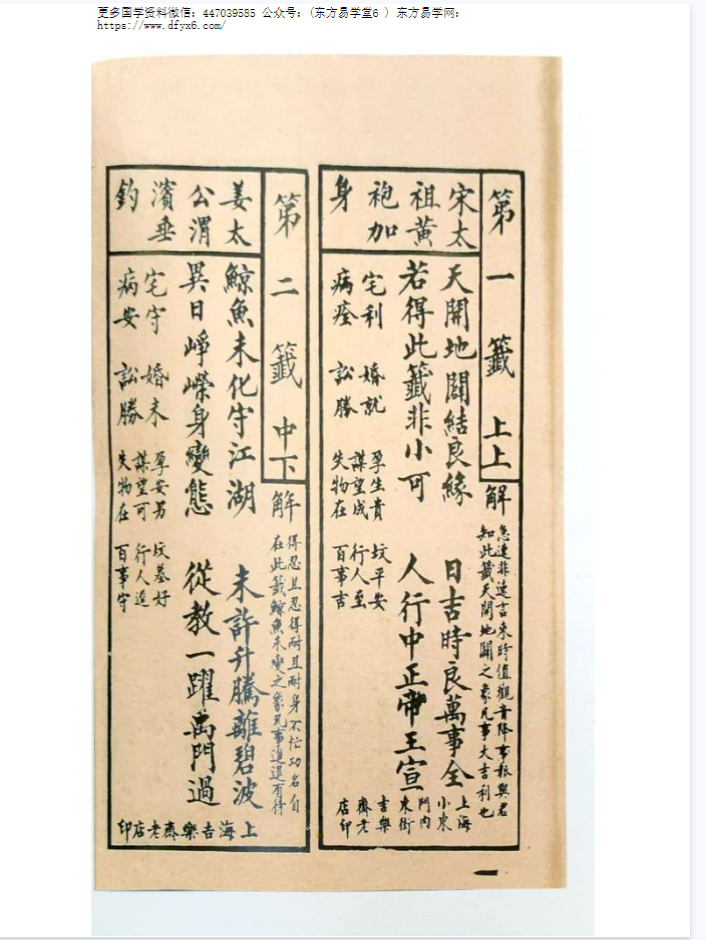 更多国学资料微信：447039585 公众号：(东方易学堂6 ) 东方易学网：
https://www.dfyx6.com/
第一籤 上上
宋太
祖黃
袍加
身
解
急速非速吉未時值觀音降事報與君
知此籤天開地闢之象凡事大吉利也
天開地闢結良緣 日吉時良萬事全
若得此籤非小可 人行中正帝王宣
宅利 婚就 孕生貴 墳平安
謀望成 行人至
病痊 訟勝 失物在 百事吉
上海
小東
門內
東街
吉樂
齋老
店印
一
第二籤 中下
姜太
公渭
濱垂
釣
解
得忍且忍得耐且耐身不忙功名自
在此籤鯨魚未變之象凡事進退有待
鯨魚未化守江湖 未許升騰離碧波
異日崢嶸身變態 從教一躍禹門過
宅守 婚未 孕安男 坟墓好
謀望可 行人遲
病安 訟勝 失物在 百事守
上海吉樂齋老店印